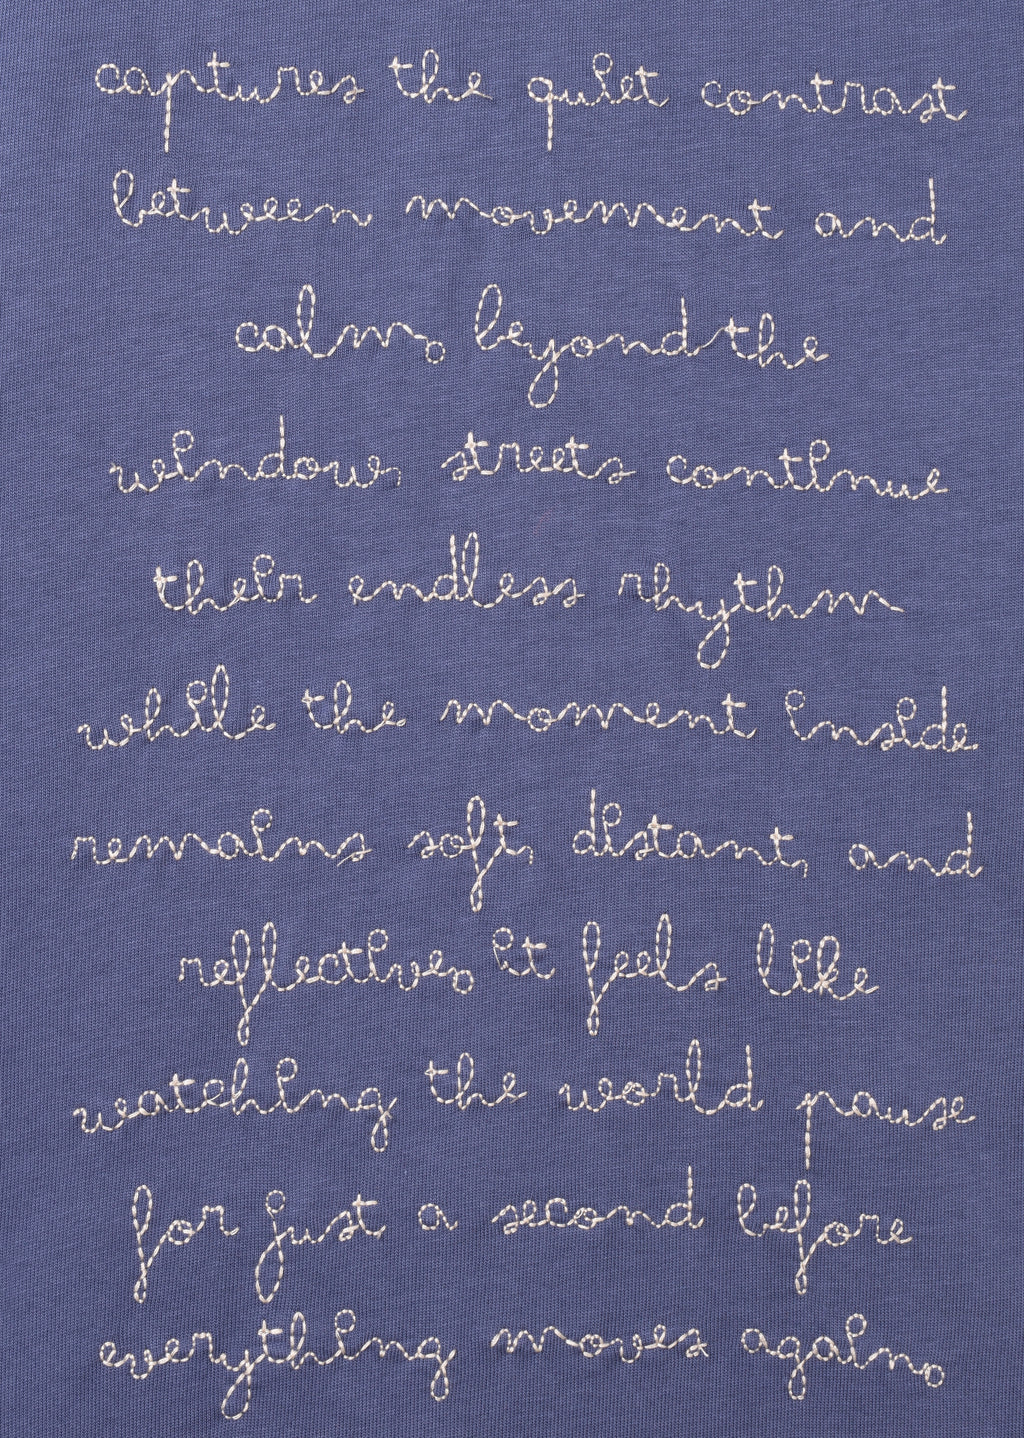 captures the quiet contrast
between movement and
calm. beyond the
window, streets continue
their endless rhythm
while the moment inside
remains soft, distant, and
reflective. it feels like
watching the world pause
for just a second before
everything moves again.